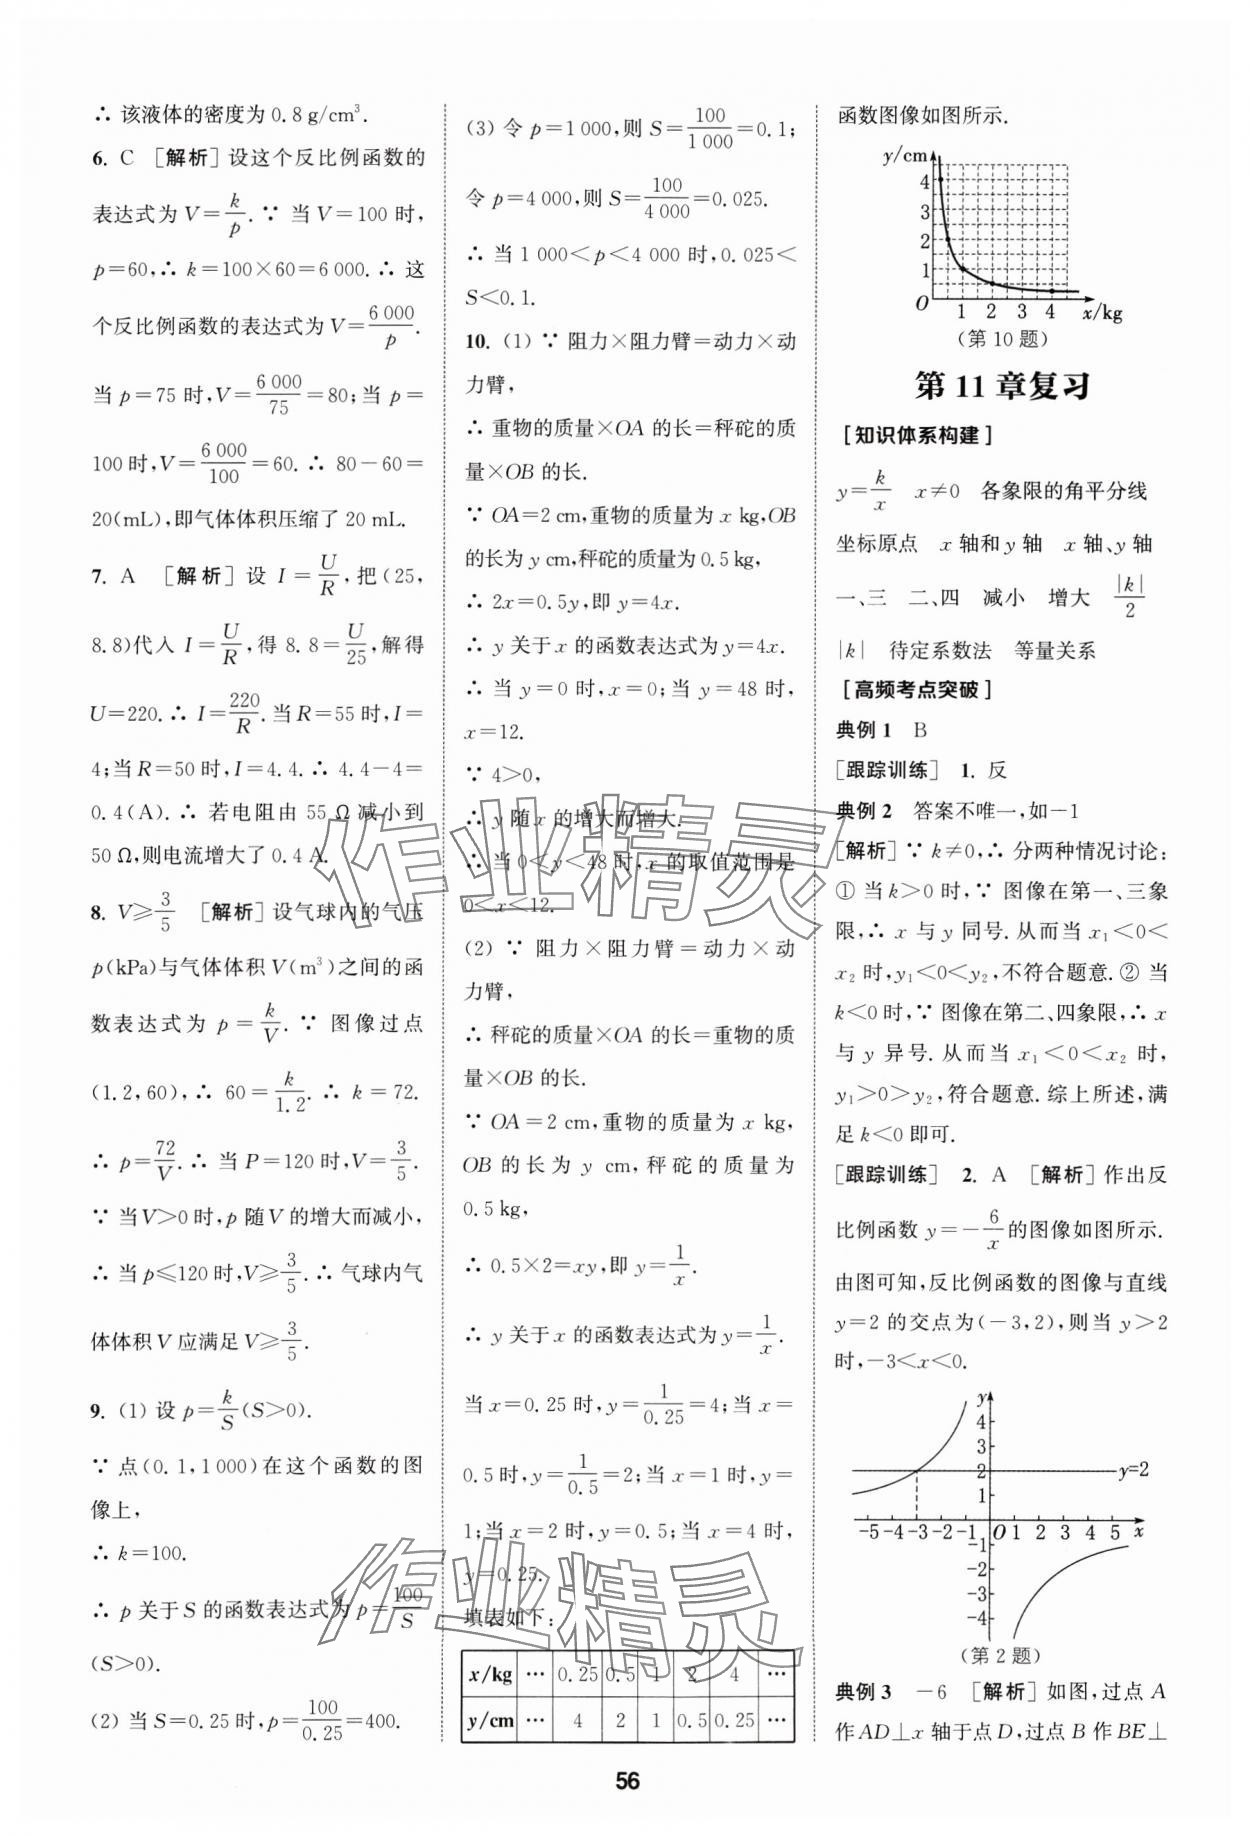 ∴ 该液体的密度为 0.8 g/cm³.
6. C [解析] 设这个反比例函数的
表达式为 V=k/p. ∵ 当 V=100 时,
p=60,∴ k=100×60=6 000. ∴ 这
个反比例函数的表达式为 V=6 000/p.
当 p=75 时,V=6 000/75=80;当 p=
100 时,V=6 000/100=60. ∴ 80-60=
20(mL),即气体体积压缩了 20 mL.
7. A [解析] 设 I=U/R,把(25,
8.8)代入 I=U/R,得 8.8=U/25,解得
U=220. ∴ I=220/R. 当 R=55 时,I=
4;当 R=50 时,I=4.4. ∴ 4.4-4=
0.4(A). ∴ 若电阻由 55 Ω 减小到
50 Ω,则电流增大了 0.4 A.
8. V≥3/5 [解析] 设气球内的气压
p(kPa)与气体体积 V(m³)之间的函
数表达式为 p=k/V. ∵ 图像过点
(1.2,60),∴ 60=k/1.2. ∴ k=72.
∴ p=72/V. ∴ 当 P=120 时,V=3/5.
∵ 当 V>0 时,p 随 V 的增大而减小,
∴ 当 p≤120 时,V≥3/5. ∴ 气球内气
体体积 V 应满足 V≥3/5.
9. (1) 设 p=k/S(S>0).
∵ 点(0.1,1 000)在这个函数的图
像上,
∴ k=100.
∴ p 关于 S 的函数表达式为 p=100/S
(S>0).
(2) 当 S=0.25 时,p=100/0.25=400.
(3) 令 p=1 000,则 S=100/1 000=0.1;
令 p=4 000,则 S=100/4 000=0.025.
∴ 当 1 000<p<4 000 时,0.025<
S<0.1.
10. (1) ∵ 阻力×阻力臂=动力×动
力臂,
∴ 重物的质量×OA 的长=秤砣的质
量×OB 的长.
∵ OA=2 cm,重物的质量为 x kg,OB
的长为 y cm,秤砣的质量为 0.5 kg,
∴ 2x=0.5y,即 y=4x.
∴ y 关于 x 的函数表达式为 y=4x.
∴ 当 y=0 时,x=0;当 y=48 时,
x=12.
∵ 4>0,
∴ y 随 x 的增大而增大.
∴ 当 0<y<48 时,x 的取值范围是
0<x<12.
(2) ∵ 阻力×阻力臂=动力×动
力臂,
∴ 秤砣的质量×OA 的长=重物的质
量×OB 的长.
∵ OA=2 cm,重物的质量为 x kg,
OB 的长为 y cm,秤砣的质量为
0.5 kg,
∴ 0.5×2=xy,即 y=1/x.
∴ y 关于 x 的函数表达式为 y=1/x.
当 x=0.25 时,y=1/0.25=4;当 x=
0.5 时,y=1/0.5=2;当 x=1 时,y=
1;当 x=2 时,y=0.5;当 x=4 时,
y=0.25.
填表如下:
x/kg … 0.25 0.5 1 2 4 …
y/cm … 4 2 1 0.5 0.25 …
函数图像如图所示.
y/cm
4
3
2
1
O 1 2 3 4 x/kg
(第 10 题)
第 11 章复习
[知识体系构建]
y=k/x x≠0 各象限的角平分线
坐标原点 x 轴和 y 轴 x 轴、y 轴
一、三 二、四 减小 增大 |k|/2
|k| 待定系数法 等量关系
[高频考点突破]
典例 1 B
[跟踪训练] 1. 反
典例 2 答案不唯一,如-1
[解析] ∵ k≠0,∴ 分两种情况讨论:
① 当 k>0 时,∵ 图像在第一、三象
限,∴ x 与 y 同号. 从而当 x₁<0<
x₂ 时,y₁<0<y₂,不符合题意. ② 当
k<0 时,∵ 图像在第二、四象限,∴ x
与 y 异号. 从而当 x₁<0<x₂ 时,
y₁>0>y₂,符合题意. 综上所述,满
足 k<0 即可.
[跟踪训练] 2. A [解析] 作出反
比例函数 y=-6/x 的图像如图所示.
由图可知,反比例函数的图像与直线
y=2 的交点为(-3,2),则当 y>2
时,-3<x<0.
y
4
3
2 y=2
1
-5 -4 -3 -2 -1 O 1 2 3 4 5 x
-1
-2
-3
-4
(第 2 题)
典例 3 -6 [解析] 如图,过点 A
作 AD⊥x 轴于点 D,过点 B 作 BE⊥
56
作业精灵
作业精灵